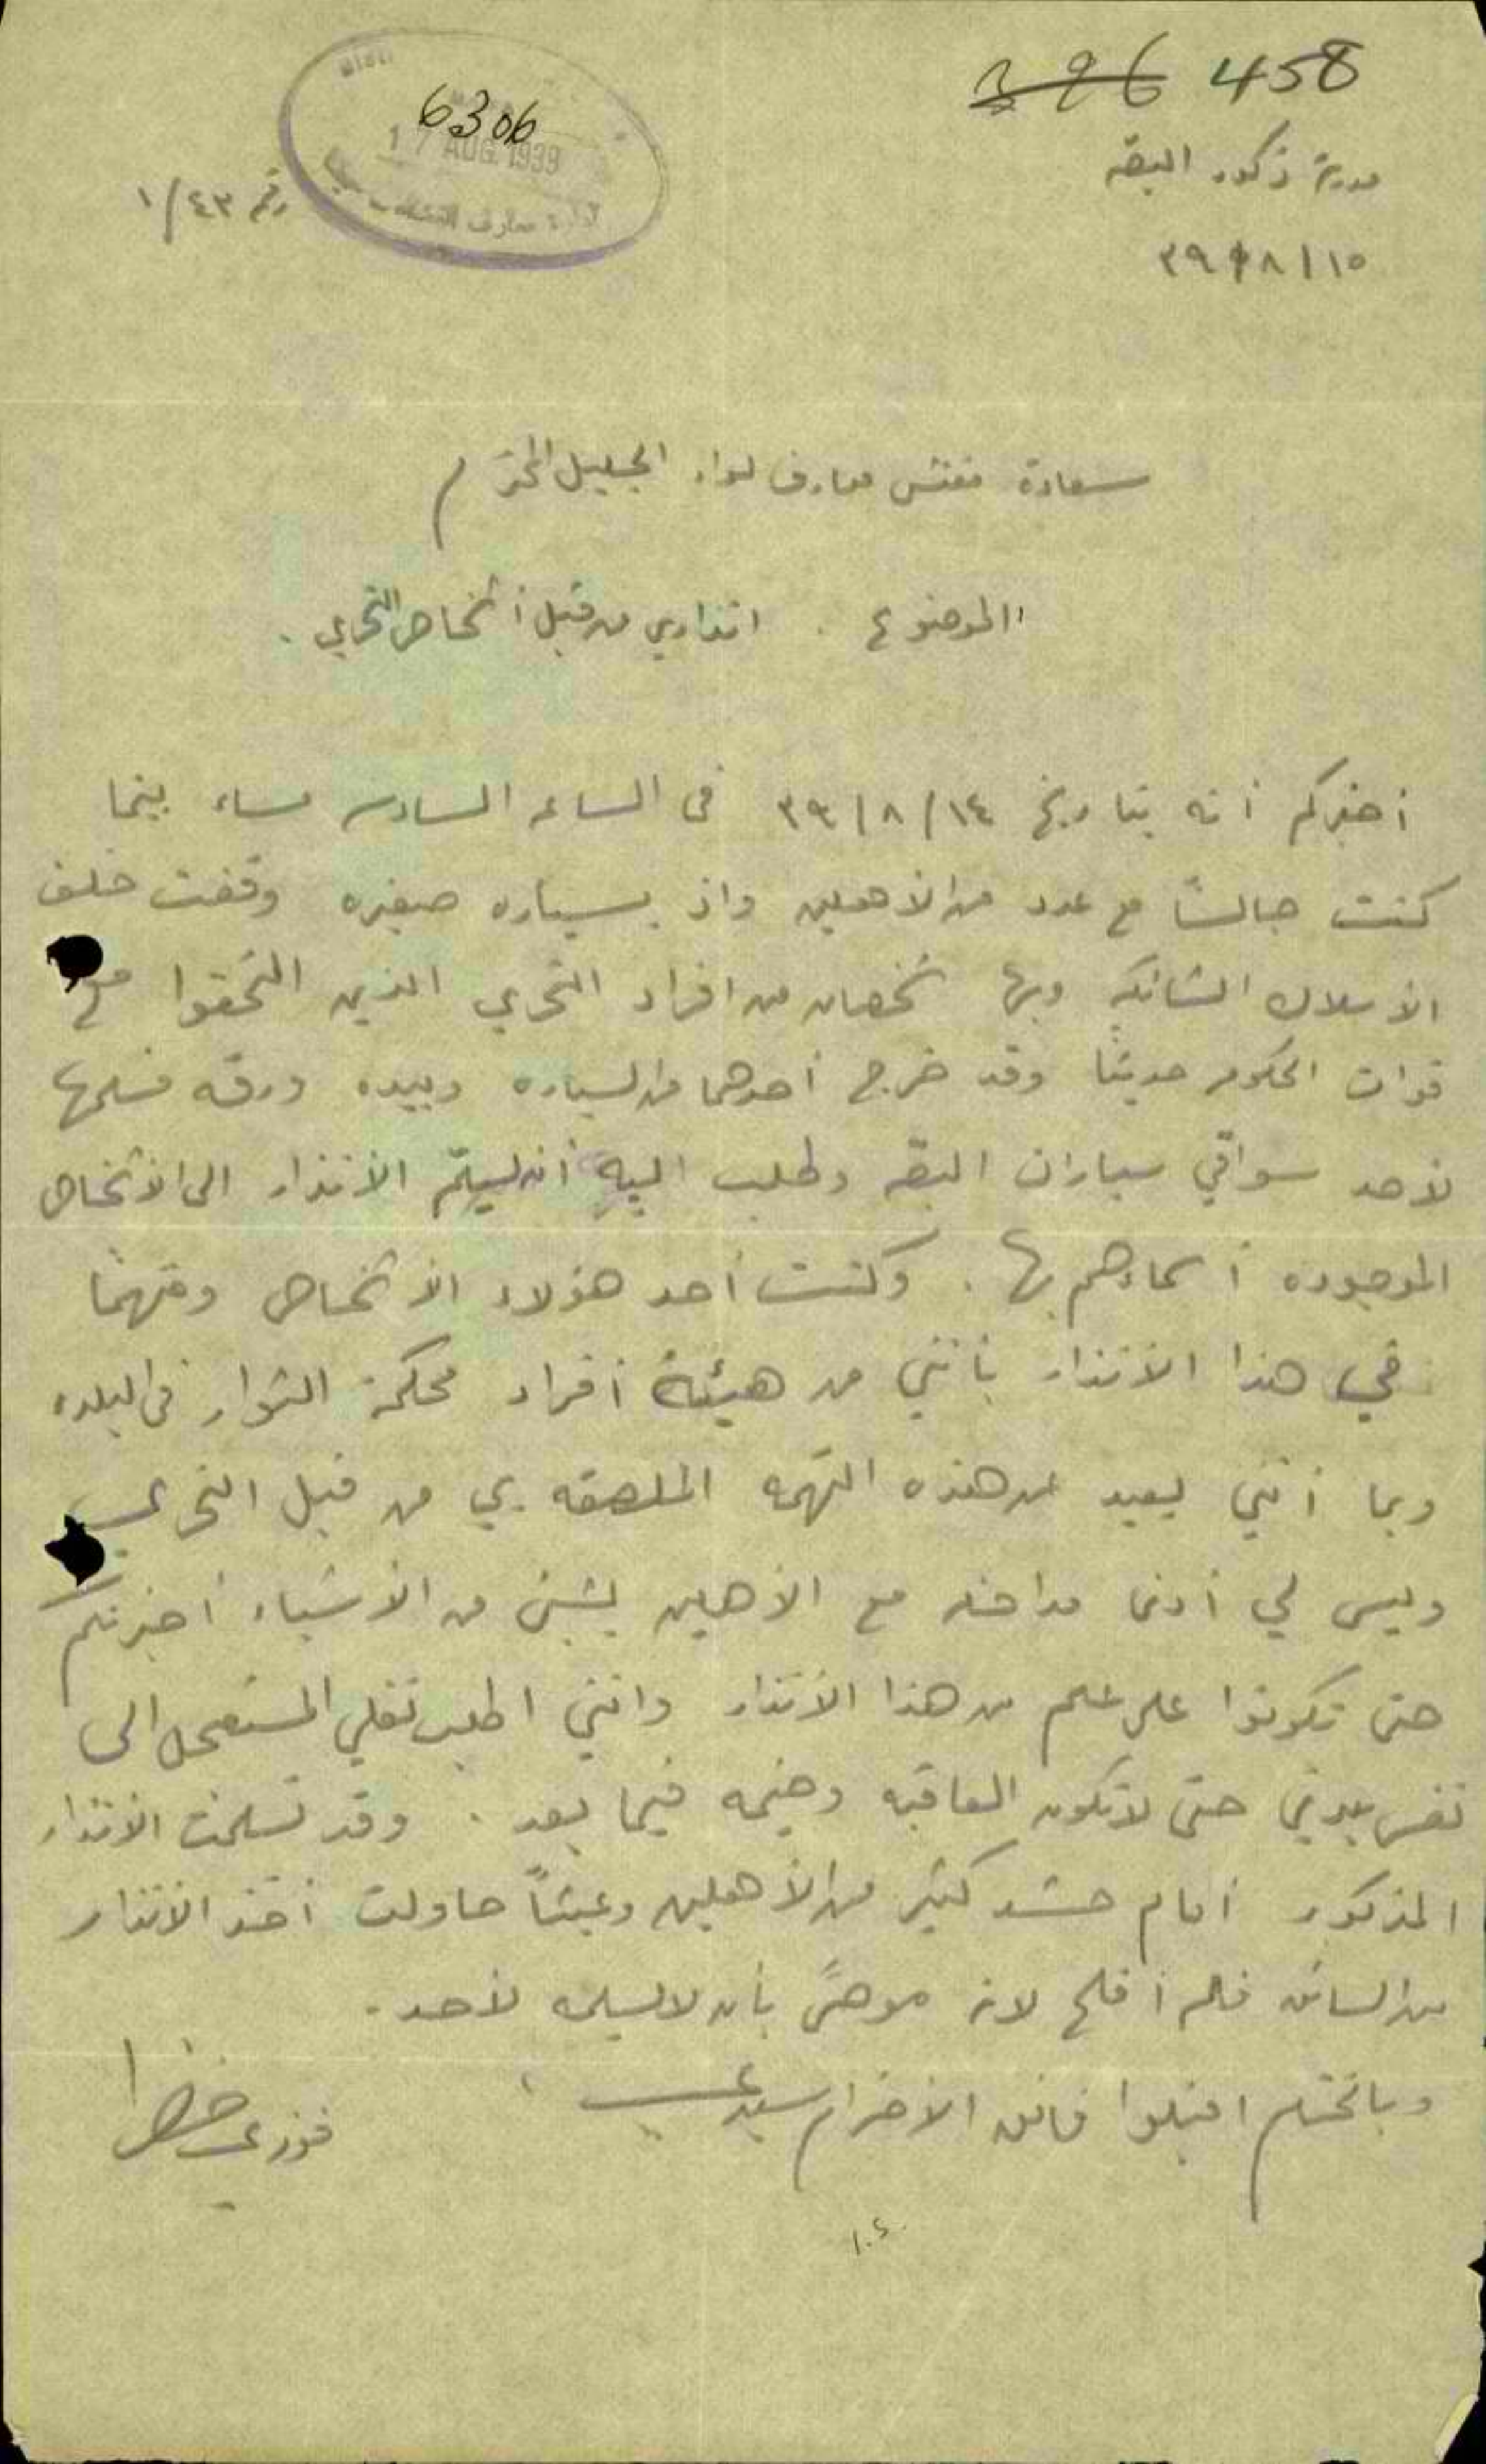 396 458
6306
17 AUG 1939
مدرسة ذكور البصه
رقم ١/٤٣
١٥ / ٨ / ٣٩
سعادة مفتش معارف لواء الجليل المحترم
الموضوع . انذاري من قبل أشخاص التحري .
أخبركم أنه بتاريخ ١٤ / ٨ / ٣٩ في الساعه السادسه مساء بينما
كنت جالساً مع عدد من الأهلين واذ بسياره صغيره وقفت خلف
الأسلاك الشائكه وبها شخصان من افراد التحري الذين التحقوا مع
قوات الحكومه حديثاً وقد خرج أحدهما من السياره وبيده ورقه فسلمها
لأحد سواقي سيارات البصه وطلب اليه أن يسلم الأنذار الى الأشخاص
الموجوده أسماءهم بها . وكنت أحد هؤلاء الأشخاص ومتهماً
في هذا الأنذار بأنني من هيئة أفراد محكمة الثوار في البلده
وبما أنني بعيد عن هذه التهمه الملصقه بي من قبل التحري
وليس لي أدنى مداخله مع الأهلين بشيئ من الأشياء أخبرتكم
حتى تكونوا على علم من هذا الأنذار وانني اطلب نقلي المستعجل الى
نفس بلدتي حتى لا تكون العاقبه وخيمه فيما بعد . وقد تسلمت الأنذار
المذكور أمام حشد كثير من الأهلين وعبثاً حاولت أخذ الأنذار
من السائق فلم أفلح لانه موصىً بأن لا يسلمه لأحد .
وبالختام اقبلوا فائق الأحترام سيدي
فوزي خضرا